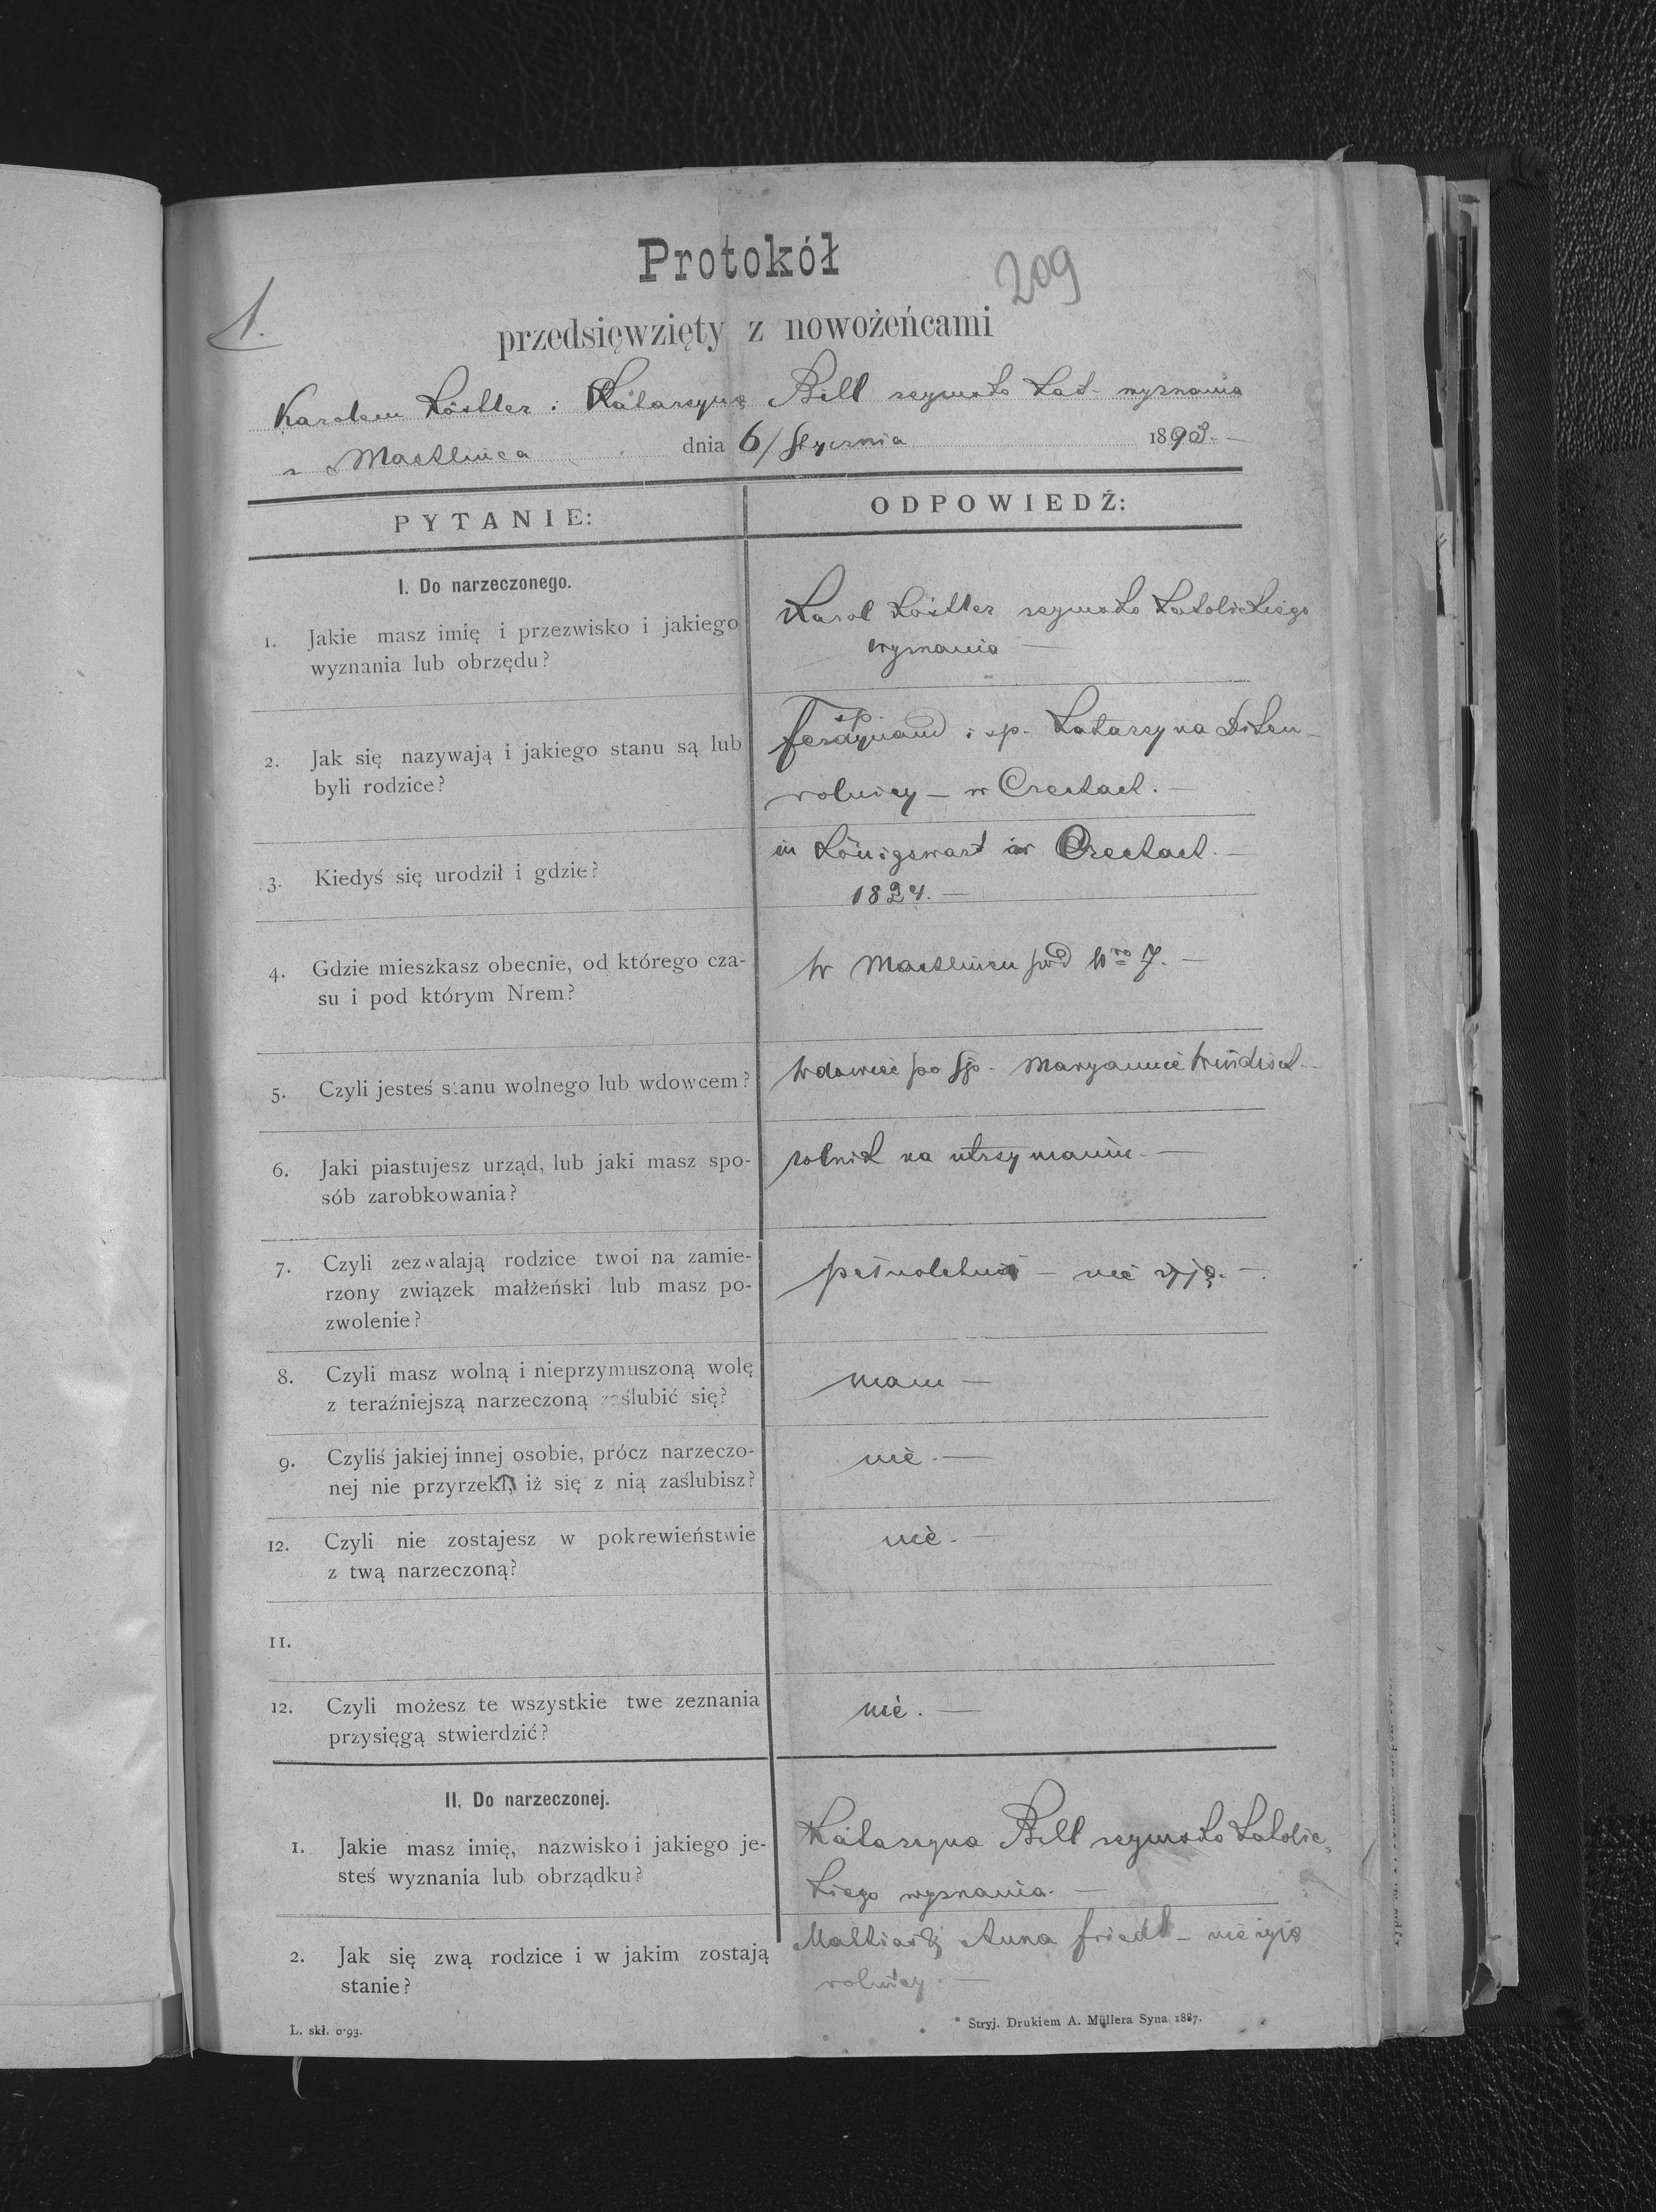 Protokół
209
1.
przedsięwzięty z nowożeńcami
Karolem Köstler i Katarzyną Bill rzymsko kat. wyznania
z Machlińca dnia 6/ Stycznia 1893. —
PYTANIE:
ODPOWIEDŹ:
I. Do narzeczonego.
1. Jakie masz imię i przezwisko i jakiego
wyznania lub obrzędu?
Karol Köstler rzymsko katolickiego
wyznania —
2. Jak się nazywają i jakiego stanu są lub
byli rodzice?
śp.
Ferdynand i śp. Katarzyna
rolnicy — w Czechach. —
3. Kiedyś się urodził i gdzie?
in Königswart w Czechach. —
1824. —
4. Gdzie mieszkasz obecnie, od którego cza-
su i pod którym Nrem?
w Machlińcu pod Nro 7. —
5. Czyli jesteś stanu wolnego lub wdowcem?
wdowiec po śp. Maryannie
6. Jaki piastujesz urząd, lub jaki masz spo-
sób zarobkowania?
rolnik na utrzymaniu. —
7. Czyli zezwalają rodzice twoi na zamie-
rzony związek małżeński lub masz po-
zwolenie?
pełnoletni — nie żyją. —
8. Czyli masz wolną i nieprzymuszoną wolę
z teraźniejszą narzeczoną zaślubić się?
mam —
9. Czyliś jakiej innej osobie, prócz narzeczo-
nej nie przyrzekł, iż się z nią zaślubisz?
nie. —
12. Czyli nie zostajesz w pokrewieństwie
z twą narzeczoną?
nie. —
11.
12. Czyli możesz te wszystkie twe zeznania
przysięgą stwierdzić?
nie. —
II. Do narzeczonej.
1. Jakie masz imię, nazwisko i jakiego je-
steś wyznania lub obrządku?
Katarzyna Bill rzymsko katolic-
kiego wyznania. —
2. Jak się zwą rodzice i w jakim zostają
stanie?
Mathias i Anna Friedl — nie żyją
rolnicy. —
L. skł. 0·93.
Stryj. Drukiem A. Müllera Syna 1887.